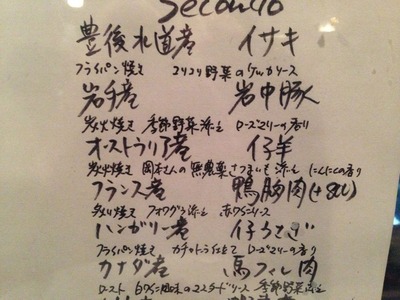 Secondo
豊後水道産 イサキ
フライパン焼き コリコリ野菜の ソース
岩手産 岩中豚
炭火焼き 季節野菜添え ローズマリーの香り
オーストラリア産 仔羊
炭火焼き 岡本さんの無農薬さつまいも添え にんにくの香り
フランス産 鴨胸肉(+800)
炙り焼き フォワグラ添え 赤ワインソース
ハンガリー産 仔うさぎ
フライパン焼き カチャトーラ仕立て ローズマリーの香り
カナダ産 馬フィレ肉
ロースト 白ワイン風味のマスタードソース 季節野菜添え